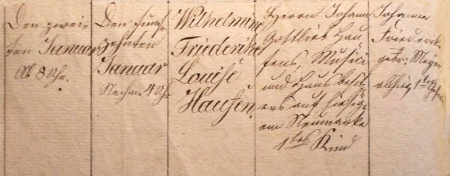 Den zwei-
ten Januar
Ab 8 Uhr.
Den funf-
zehnten
Januar
Nachm. 4 Uhr.
Wilhelmine
Friederike
Louise
Hausen.
Herrn Johann
Gottlieb Hau
sens, Musici
und Haus besitz
ers auf hiesig
em Neumarkt
1tes Kind
Johanna
Friederike
gebr. Meyer
1ste Ehe